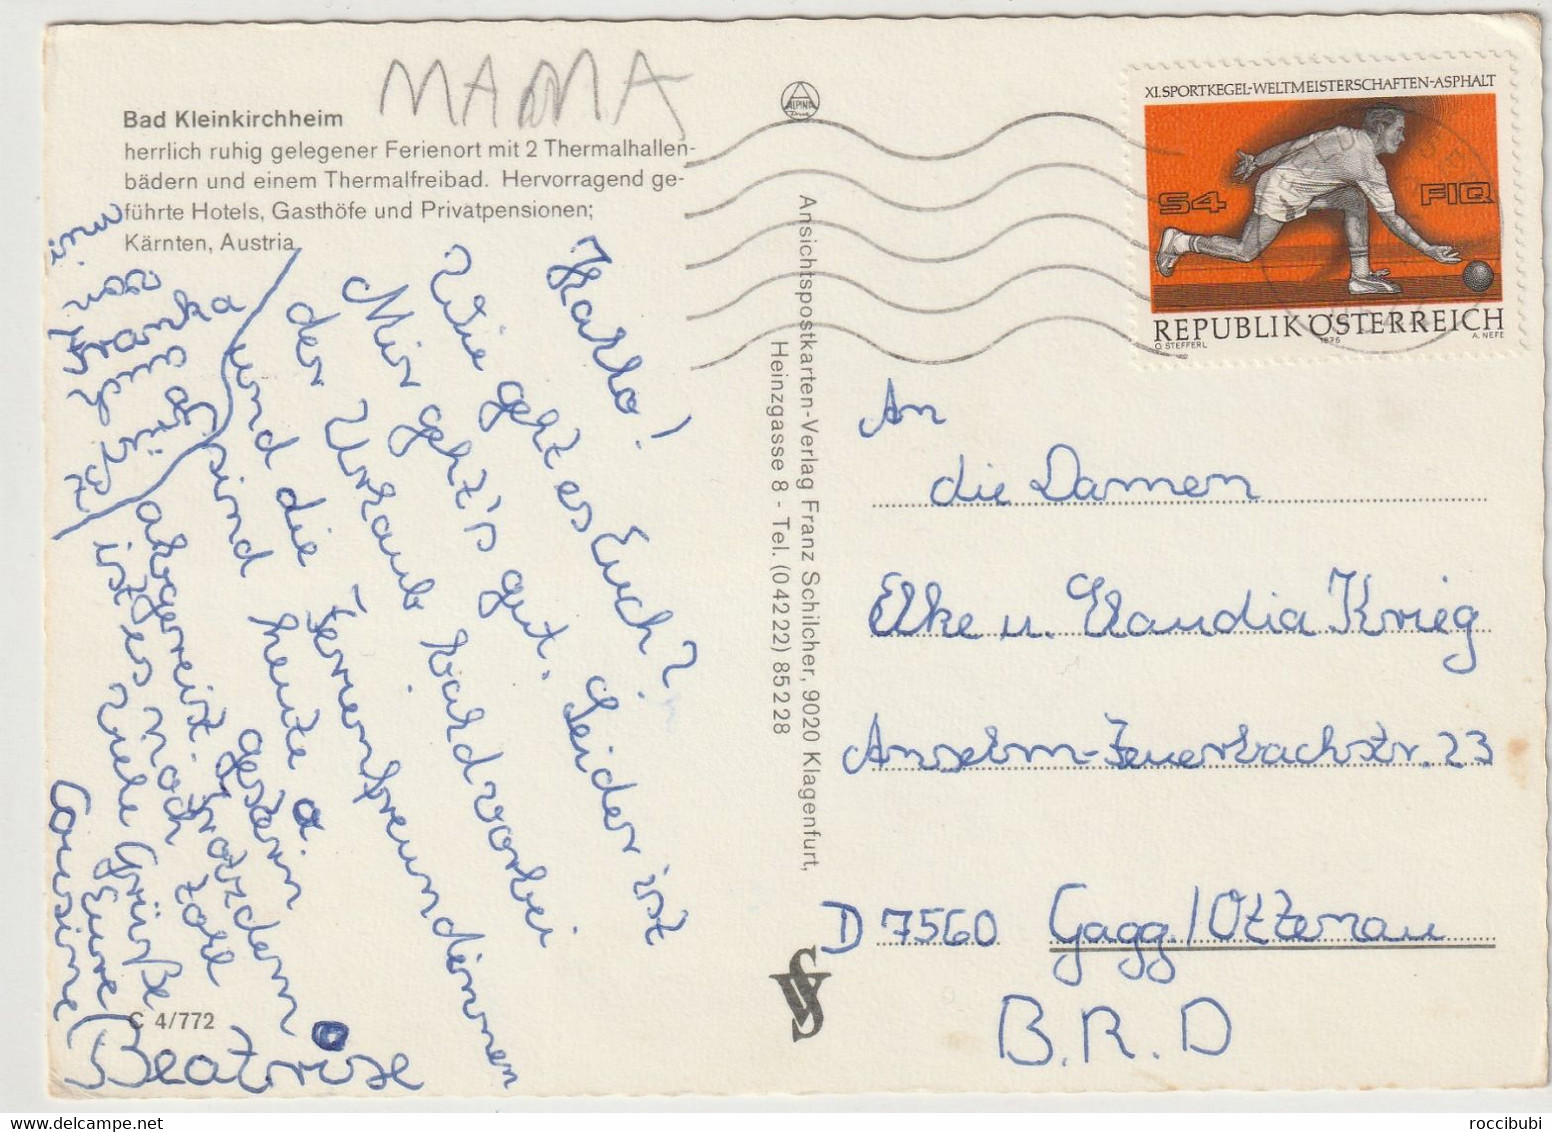 MAMA
Bad Kleinkirchheim
herrlich ruhig gelegener Ferienort mit 2 Thermalhallen-
bädern und einem Thermalfreibad. Hervorragend ge-
führte Hotels, Gasthöfe und Privatpensionen;
Kärnten, Austria
Hallo!
Wie geht es Euch?
Mir geht's gut. Leider ist
der Urlaub bald vorbei
und die Ferienfreundinnen
sind heute o.
gestern
abgereist. Trotzdem
ist es noch toll
Viele Grüße
Eure
Cousine
(Beatrise
C 4/772
Ansichtspostkarten-Verlag Franz Schilcher, 9020 Klagenfurt,
Heinzgasse 8 - Tel. (04222) 85228
ALPINA
XI. SPORTKEGEL-WELTMEISTERSCHAFTEN-ASPHALT
S4
FIQ
REPUBLIK ÖSTERREICH
O. STEFFERL
1976
A. NEFE
An
die Damen
Elke u. Claudia Krieg
Anselm-Feuerbachstr. 23
D 7560 Gagg./Ottenau
B.R.D
roccibubi